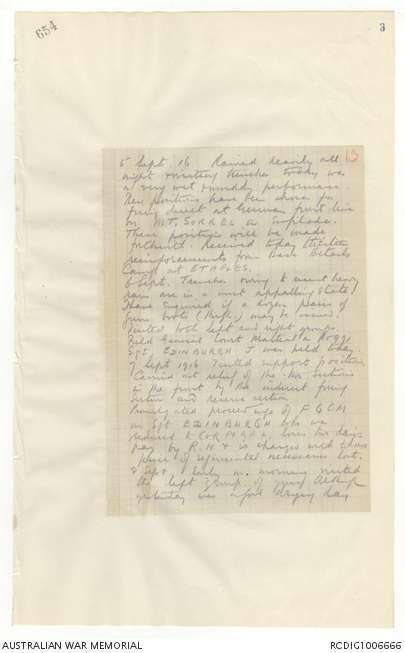 654
3
13
5 Sept. 16 Rained heavily all
night & visiting trenches today was
a very wet & muddy performance.
New positions have been chosen for
firing direct at German front line
by MT. SORREL in enfilade.
These positions will be made
forthwith. Received today thirteen
reinforcements from Base Details
Camp at ETAPLES.
6 Sept. Trenches owing to recent heavy
rain are in a most appalling state
I have enquired if a dozen pairs of
Gum boots (thigh) may be issued.
Visited both left and right groups.
Field General Court Martial on
Sgt. EDINBURGH J was held today.
7 Sept 1916 Visited support position
Carried out relief of the two sections
in the front by the indirect firing
section and reserve section
Promulgated proceedings of F G C M
on Sgt EDINBURGH who was
reduced to CORPORAL, loses two days
pay by R.W. & is charged with three
pairs of regimental necessaries lost.
8 Sept. Early in morning visited
the left group of guns. Although
yesterday was a good drying day
AUSTRALIAN WAR MEMORIAL
RCDIG1006666